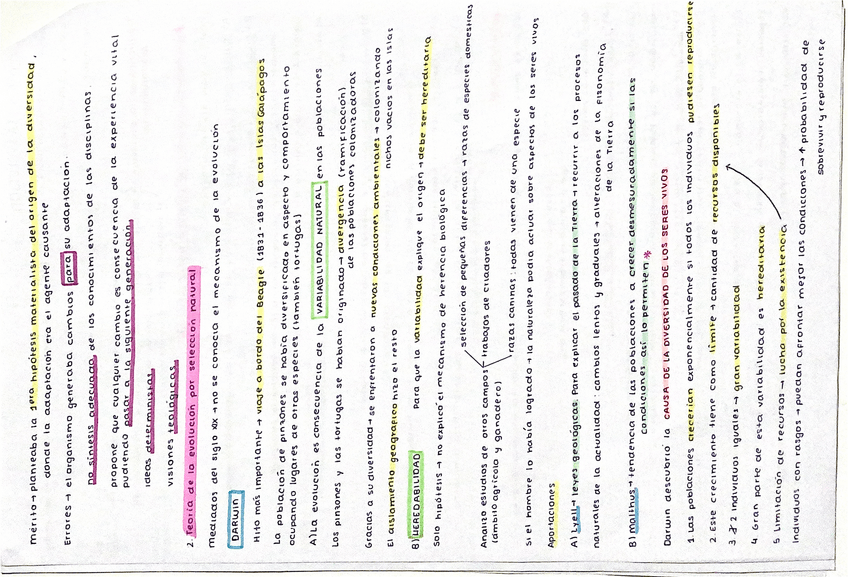 Mérito → planteaba la 1era hipótesis materialista del origen de la diversidad,
donde la adaptación era el agente causante
Errores → el organismo generaba cambios para su adaptación.
no síntesis adecuada de los conocimientos de las disciplinas.
propone que cualquier cambio es consecuencia de la experiencia vital
pudiendo pasar a la siguiente generación.
ideas deterministas
visiones teológicas
2. Teoría de la evolución por selección natural
Mediados del siglo XIX → no se conocía el mecanismo de la evolución
DARWIN
Hito más importante → viaje a bordo del Beagle (1831-1836) a las Islas Galápagos
La población de pinzones se había diversificado en aspecto y comportamiento
ocupando lugares de otras especies (también tortugas)
A) La evolución es consecuencia de la VARIABILIDAD NATURAL en las poblaciones
Los pinzones y las tortugas se habían originado → divergencia (ramificación)
de las poblaciones colonizadoras
Gracias a su diversidad → se enfrentaron a nuevas condiciones ambientales → colonizando
nichos vacíos en las islas
El aislamiento geográfico hizo el resto
B) HEREDABILIDAD Para que la variabilidad explique el origen → debe ser hereditaria
Solo hipótesis → no explicó el mecanismo de herencia biológica
selección de pequeñas diferencias → razas de especies domésticas
Analizo estudios de otros campos trabajos de criadores
(ámbito agrícola y ganadero)
razas caninas: todas vienen de una especie
Si el hombre lo había logrado → la naturaleza podía actuar sobre aspectos de los seres vivos
Aportaciones
A) Lyell → leyes geológicas. Para explicar el pasado de la Tierra → recurrir a los procesos
naturales de la actualidad: cambios lentos y graduales → alteraciones de la fisonomía
de la Tierra
B) Malthus → tendencia de las poblaciones a crecer desmesuradamente si las
condiciones así lo permiten *
Darwin descubrió la CAUSA DE LA DIVERSIDAD DE LOS SERES VIVOS
1. Las poblaciones crecerían exponencialmente si todos los individuos pudiesen reproducirse
2 Este crecimiento tiene como límite → cantidad de recursos disponibles
3 ∄ 2 individuos iguales → gran variabilidad
4 Gran parte de esta variabilidad es hereditaria
5 Limitación de recursos → lucha por la existencia
Individuos con rasgos → puedan afrontar mejor las condiciones → ↑ probabilidad de
sobrevivir y reproducirse